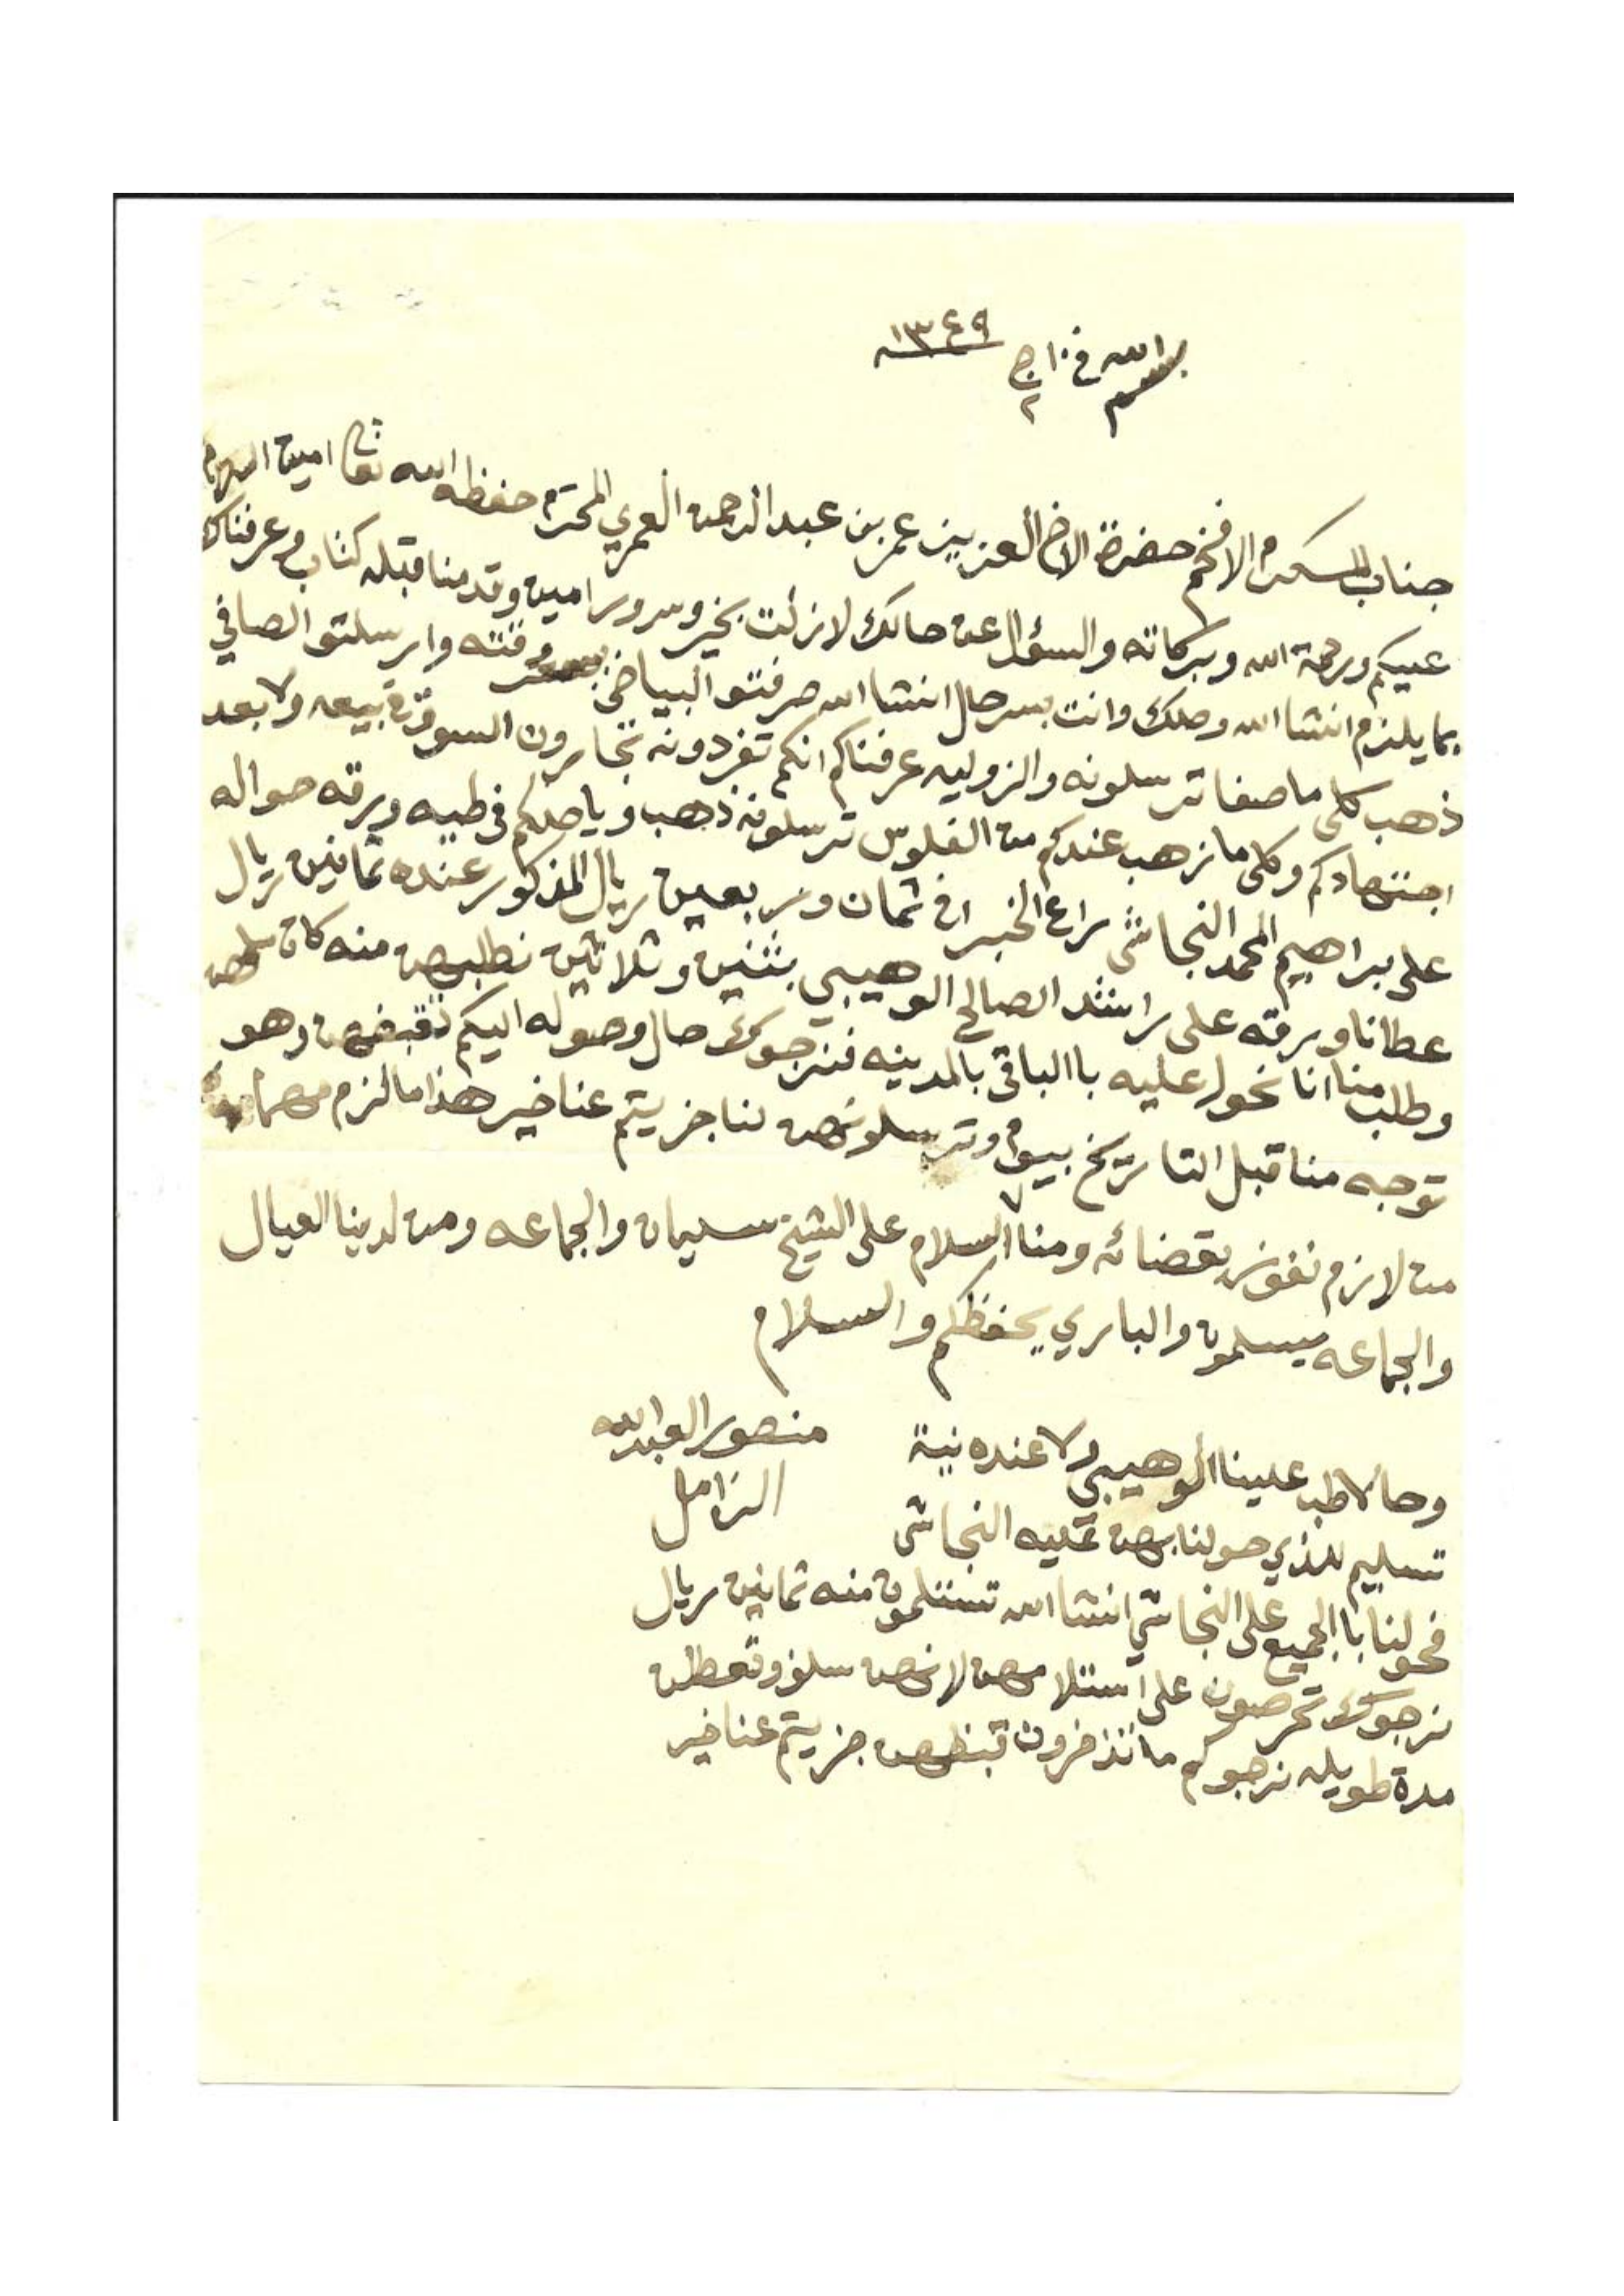 بسم الله في ١٠ ج ٢ ١٣٤٩
جناب المكرم الافخم حضرة الاخ العزيز عمر بن عبدالرحمن العمري المحترم حفظه الله تعالى امين السلام
عليكم ورحمة الله وبركاته والسؤال عن حالك لازلت بخير وسرور امين وقدمنا قبله كتاب وعرفناك
بما يلزم انشاالله وصلك وانت بسر حال انشاالله صرفتو البياض بسعر وقته وارسلتو الصافي
ذهب كلى ماصفا ترسلونه والزوليه عرفناكم انكم تفردونه تخابرون السوق في بيعه ولا بعد
اجتهادكم وكلى مانزهب عندكم من الفلوس ترسلونه ذهب وياصلكم في طيه ورقه حواله
على براهيم المحمد النجاشي راع الخبرا في ثمان وربعين ريال المذكور عنده ثمانين ريال
عطانا ورقه على راشد الصالح الوهيبي بثنين وثلاثين نطلبهن منه كان
وطلب منا انا نحول عليه باالباقي بالمدينه فنرجوك حال وصوله اليكم تقبضهن وهو
توجه منا قبل التاريخ بيوم وترسلونهن لنا جزيتم عنا خير هذا مالزم مهما
من لازم نفوز بقضائه ومنا السلام على الشيخ سليمان والجماعه ومن لدينا العيال
والجماعه يسلمون والباري يحفظكم والسلام
منصور العبدالله
الزامل
وحالا طب علينا الوهيبي ولا عنده نية
تسليم للذي حولنا بهن عليه النجاشي
فحولنا باالجميع على النجاشي انشاالله تستلمون منه ثمانين ريال
نرجوك تحرصون على استلامهن لانهن سلف وتعطلن
مدة طويله نرجوكم ماتذخرون قبظهن جزيتم عنا خير